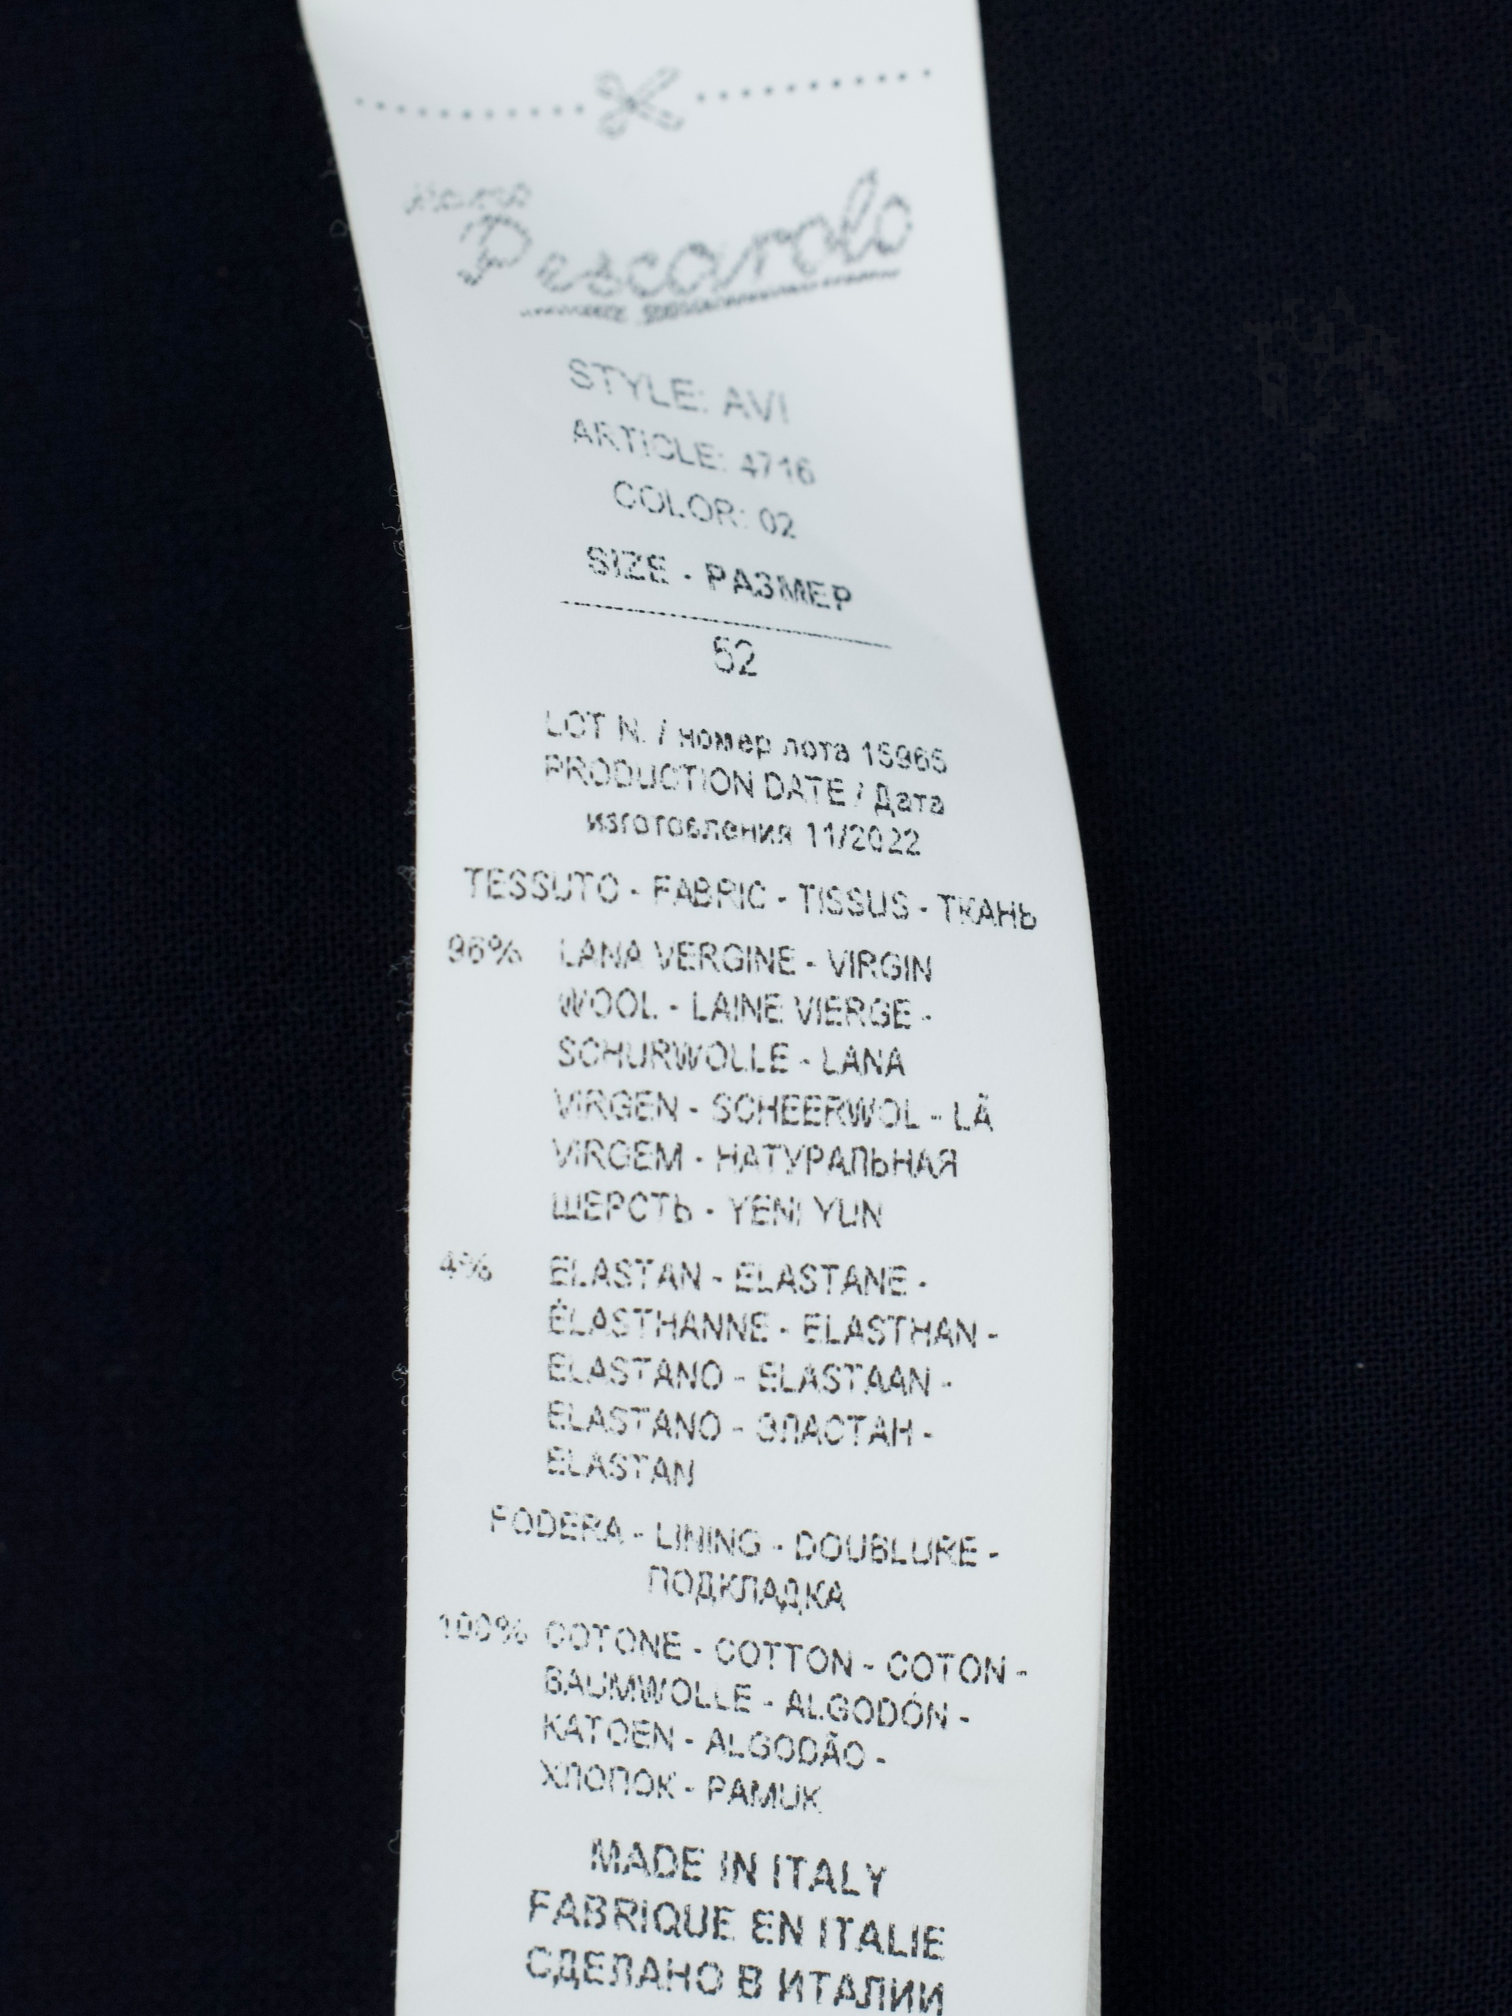 Pescarolo
STYLE: AVI
ARTICLE: 4716
COLOR: 02
SIZE - РАЗМЕР
52
LOT N. / номер лота 15965
PRODUCTION DATE / Дата
изготовления 11/2022
TESSUTO - FABRIC - TISSUS - ТКАНЬ
96% LANA VERGINE - VIRGIN
WOOL - LAINE VIERGE -
SCHURWOLLE - LANA
VIRGEN - SCHEERWOL - LÃ
VIRGEM - НАТУРАЛЬНАЯ
ШЕРСТЬ - YENI YUN
4% ELASTAN - ELASTANE -
ÉLASTHANNE - ELASTHAN -
ELASTANO - ELASTAAN -
ELASTANO - ЭЛАСТАН -
ELASTAN
FODERA - LINING - DOUBLURE -
ПОДКЛАДКА
100% COTONE - COTTON - COTON -
BAUMWOLLE - ALGODÓN -
KATOEN - ALGODÃO -
ХЛОПОК - PAMUK
MADE IN ITALY
FABRIQUE EN ITALIE
СДЕЛАНО В ИТАЛИИ